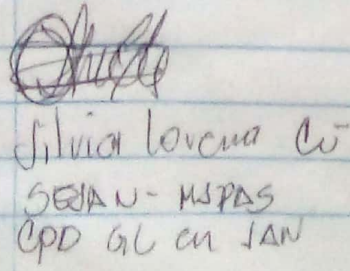 Silvia Lorena Cú
SESAN - MSPAS
CPD GL en SAN